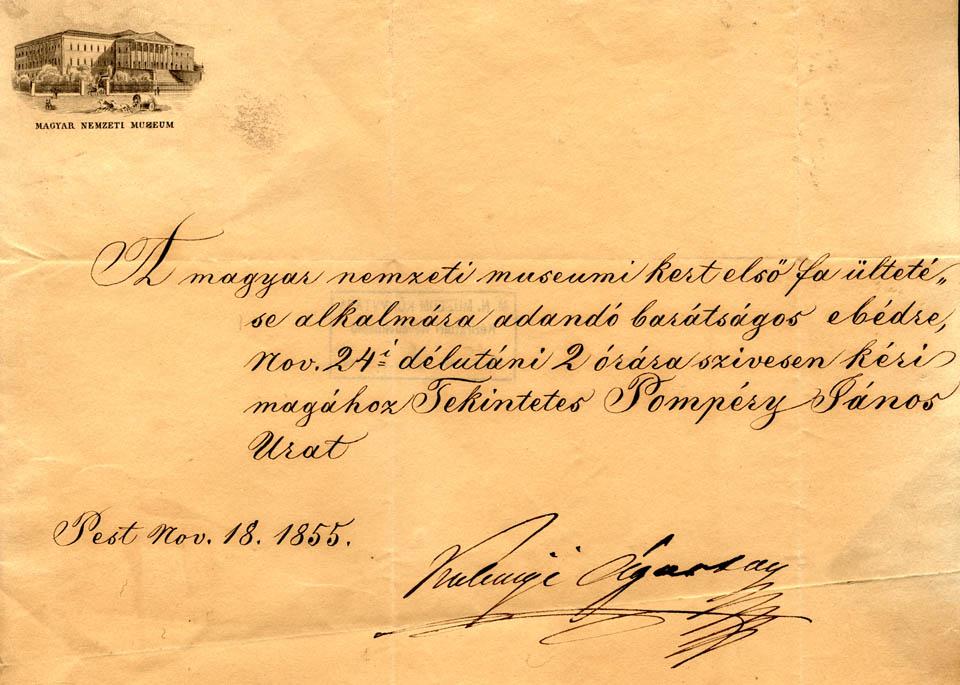 MAGYAR NEMZETI MUZEUM
A magyar nemzeti museumi kert első fa ülteté„
se alkalmára adandó barátságos ebédre,
Nov. 24i délutáni 2 órára szivesen kéri
magához Tekintetes Pompéry János
Urat
Pest Nov. 18. 1855.
Kubinyi Ágoston